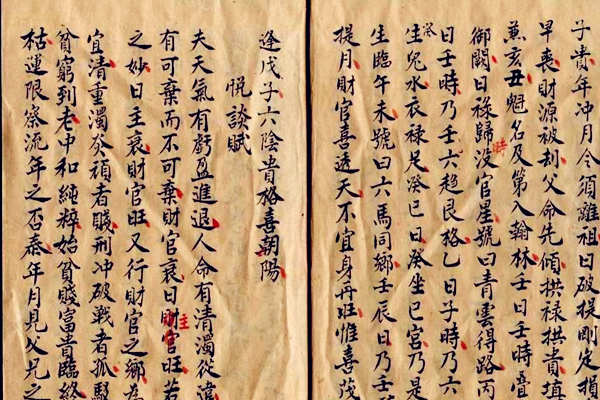 子貴年冲月令須離祖日破提剛定損
早喪財源被刦父命先傾拱祿拱貴填
兼亥丑魁名及第入翰林壬日壬時疊
御闕日祿歸没官星號曰青雲得路丙
日壬時乃壬六趋艮格乙日子時乃六
生兒水衣祿足癸巳日癸坐巳宮乃是
生臨午未號曰六馬同鄉壬辰日乃壬
提月財官喜透天不宜身再旺惟喜茂
逢戊子六陰貴格喜朝陽
悅談賦
夫天氣有虧盈進退人命有清濁從違
有可棄而不可棄財官衰日主財官旺若
之妙日主衰財官旺又行財官之鄉為
宜清重濁頑者賤刑冲破戰者孤
貧窮到老中和純粹始貧賤富貴臨終
枯運限察流年之否泰年月見父兄之